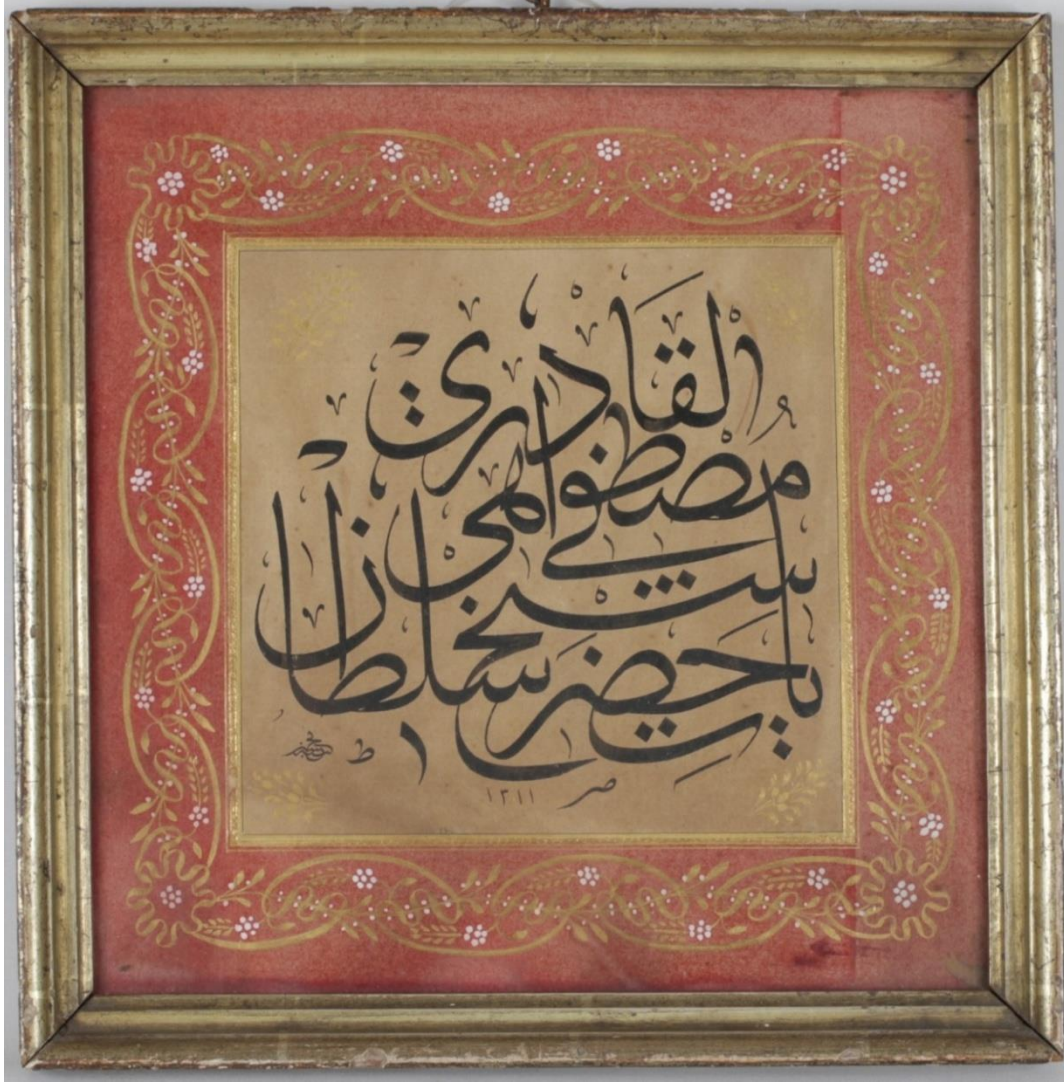 يا حضرت سلطان
شيخ
مصطفى
القادرى
١٣١١